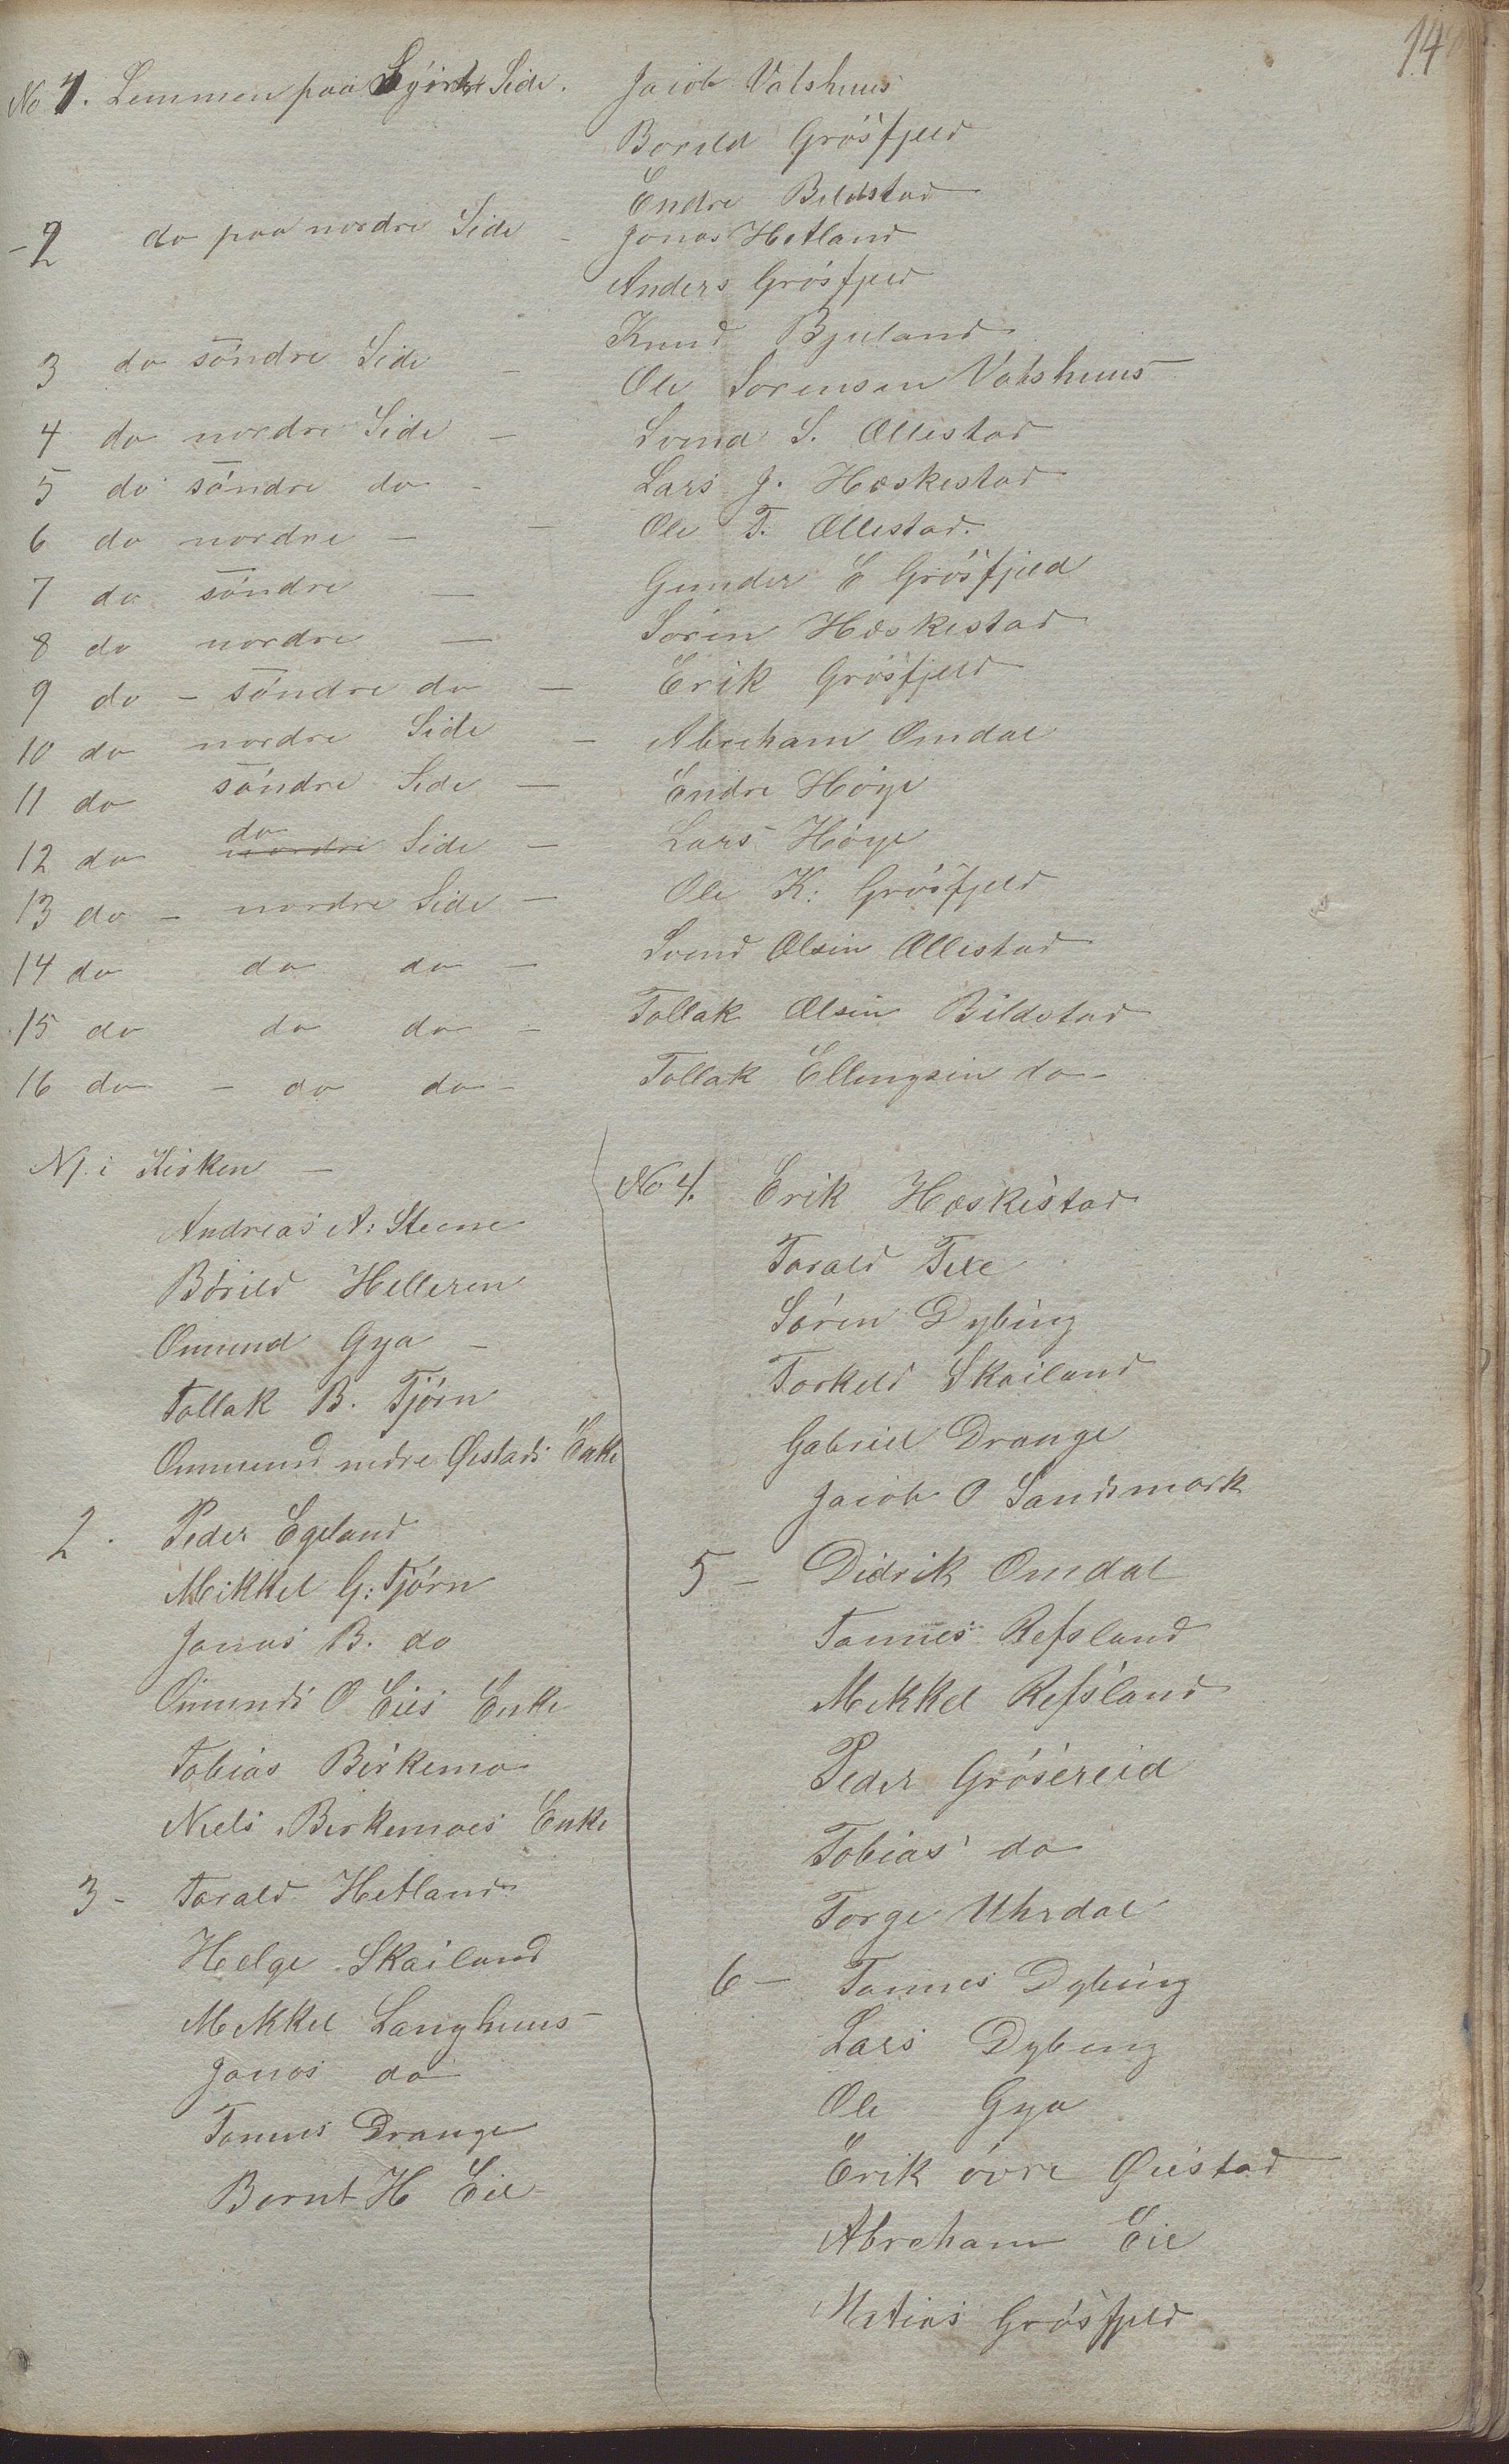 14
No 1. Lemmen paa Side. Jacob Vatshuus
Borild Grösfjeld
Endre Bildstad
- 2 do paa nordre Side - Jonas Hetland
Anders Grösfjeld
Knud Bjuland
3 do söndre Side - Ole Sorensen Vatshuus
4 do nordre Side - Svend S. Ollestad
5 do söndre do - Lars J. Hæskestad
6 do nordre - - Ole T. Ollestad.
7 do söndre - Gunder E Grösfjeld
8 do nordre - Sören Hæskestad
9 do - söndre do - Erik Grösfjeld
10 do nordre Side - Abreham Omdal
11 do söndre Side - Endre Höye
12 do nordre do Side - Lars Höye
13 do - nordre Side - Ole K: Grösfjeld
14 do do do - Svend Olsen Ollestad
15 do do do - Tollak Olsen Bildstad
16 do - do do - Tollak Ellingsen do -
N 1. i Kirken -
Andreas A: Steene
Börild Helleren
Omund Gya -
Tollak B. Tjörn
Ommund nedre Østads Enke
2. Peder Egeland
Mikkel G: Tjörn
Jonas B. do
Omunds O Eies Enke
Tobias Birkemo
Niels Birkemoes Enke
3 - Tarald Hetland
Helge Skailand
Mikkel Langhuus
Jonas do
Tönnes Drange
Bernt H Eie
No 4. Erik Hæskestad
Tarald Fexe
Sören Dybing
Torkeld Skailand
Gabriel Drange
Jacob O Sandsmark
5 - Didrik Omdal
Tönnes Refsland
Mikkel Refsland
Peder Grösereid
Tobias do
Torge Uhrdal
6 - Tönnes Dybing
Lars Dybing
Ole Gya
Erik övre Øiestad
Abreham Eie
Matias Grösfjeld